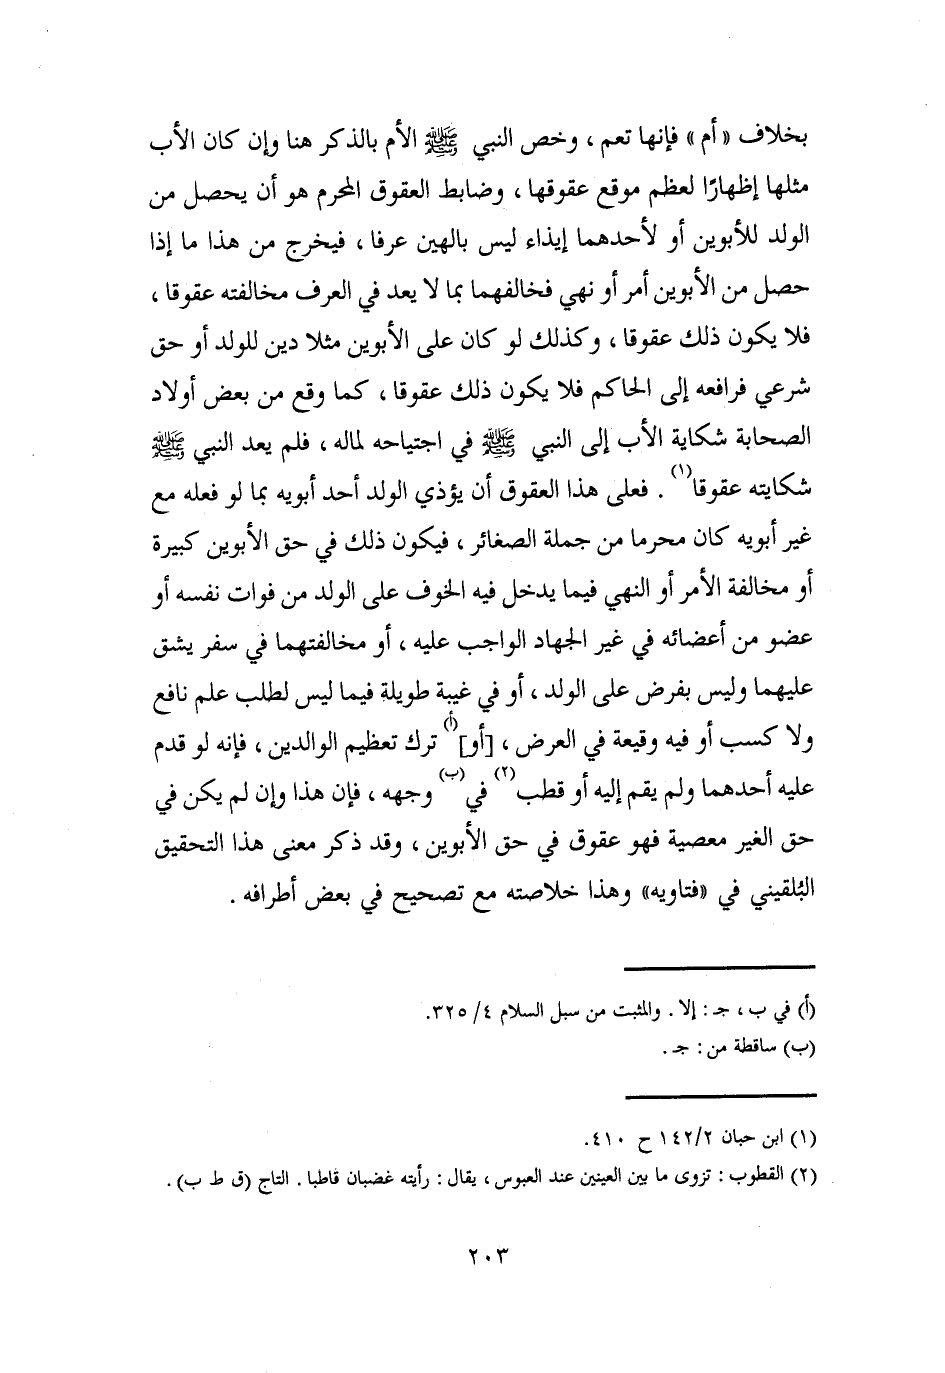 بخلاف «أم» فإنها تعم ، وخص النبي ﷺ الأم بالذكر هنا وإن كان الأب
مثلها إظهارًا لعظم موقع عقوقها ، وضابط العقوق المحرم هو أن يحصل من
الولد للأبوين أو لأحدهما إيذاء ليس بالهين عرفا ، فيخرج من هذا ما إذا
حصل من الأبوين أمر أو نهي فخالفهما بما لا يعد في العرف مخالفته عقوقا ،
فلا يكون ذلك عقوقا ، وكذلك لو كان على الأبوين مثلا دين للولد أو حق
شرعي فرافعه إلى الحاكم فلا يكون ذلك عقوقا ، كما وقع من بعض أولاد
الصحابة شكاية الأب إلى النبي ﷺ في اجتياحه لماله ، فلم يعد النبي ﷺ
شكايته عقوقا(١) . فعلى هذا العقوق أن يؤذي الولد أحد أبويه بما لو فعله مع
غير أبويه كان محرما من جملة الصغائر ، فيكون ذلك في حق الأبوين كبيرة
أو مخالفة الأمر أو النهي فيما يدخل فيه الخوف على الولد من فوات نفسه أو
عضو من أعضائه في غير الجهاد الواجب عليه ، أو مخالفتهما في سفر يشق
عليهما وليس بفرض على الولد ، أو في غيبة طويلة فيما ليس لطلب علم نافع
ولا كسب أو فيه وقيعة في العرض ، [أو](أ) ترك تعظيم الوالدين ، فإنه لو قدم
عليه أحدهما ولم يقم إليه أو قطب(٢) في(ب) وجهه ، فإن هذا وإن لم يكن في
حق الغير معصية فهو عقوق في حق الأبوين ، وقد ذكر معنى هذا التحقيق
البُلقيني في «فتاويه» وهذا خلاصته مع تصحيح في بعض أطرافه .
(أ) في ب ، جـ : إلا . والمثبت من سبل السلام ٤/ ٣٢٥.
(ب) ساقطة من : جـ .
(١) ابن حبان ١٤٢/٢ ح ٤١٠.
(٢) القطوب : تزوى ما بين العينين عند العبوس ، يقال : رأيته غضبان قاطبا . التاج (ق ط ب) .
٢٠٣